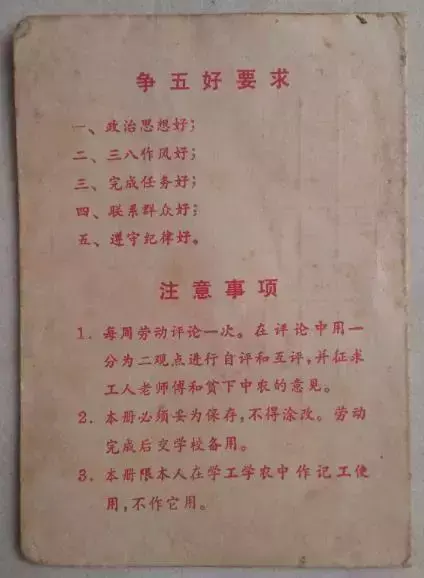 争五好要求
一、政治思想好；
二、三八作风好；
三、完成任务好；
四、联系群众好；
五、遵守纪律好。
注意事项
1. 每周劳动评论一次。在评论中用一
分为二观点进行自评和互评，并征求
工人老师傅和贫下中农的意见。
2. 本册必须妥为保存，不得涂改。劳动
完成后交学校备用。
3. 本册限本人在学工学农中作记工使
用，不作它用。